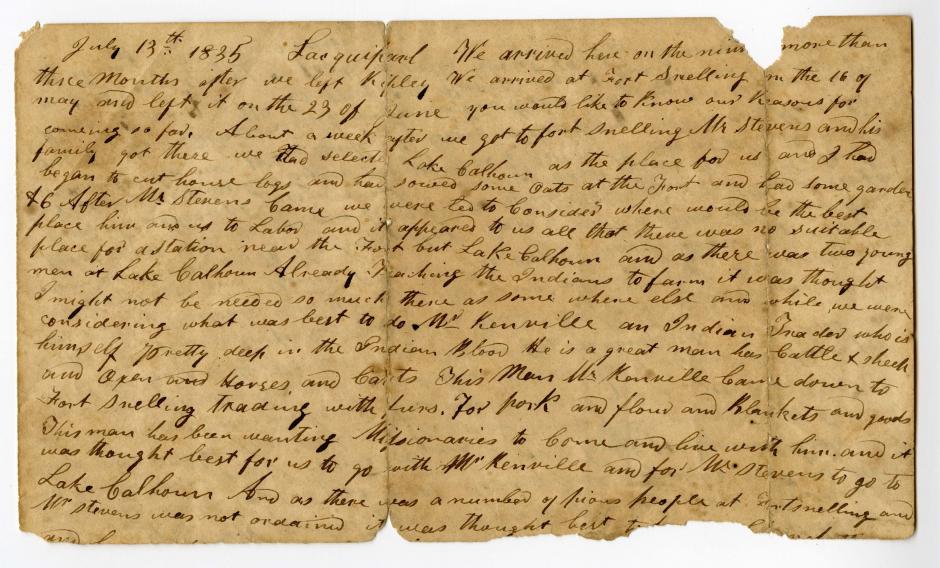 July 13th. 1835 Lacquiparl We arrived here on the more than
three Months after we left Ripley We arrived at Fort Snelling on the 16 of
may and left it on the 23 of June you would like to know our Reasons for
coming so far. About a week after we got to fort Snelling Mr Stevens and his
family got there we Had Lake Calhoun as the place for us and I had
began to cut house logs and had sowed some Oats at the Fort and had some garden
&6 After Mr Stevens Came we were led to Consider where would be the best
place him and us to Labor and it appeared to us all that there was no suitable
place for a station near the Fort but Lake Calhoun and as there was two young
men at Lake Calhoun Already Teaching the Indians to farm it was thought
I might not be needed so much there as some where else and while we were
considering what was best to do Mr Kenville an Indian Trader who is
himself pretty deep in the Indian Blood He is a great man has Cattle & sheek
and Oxen and Horses and Carts This Man Mr Kenville Came down to
Fort Snelling trading with furs. For pork and flour and Blankets and goods
This man has been wanting Missionaries to Come and live with him. and it
was thought best for us to go with Mr Kenville and for Mr Stevens to go to
Lake Calhoun And as there was a number of pious people at Fortsnelling and
Mr Stevens was not ordained it was thought best
and